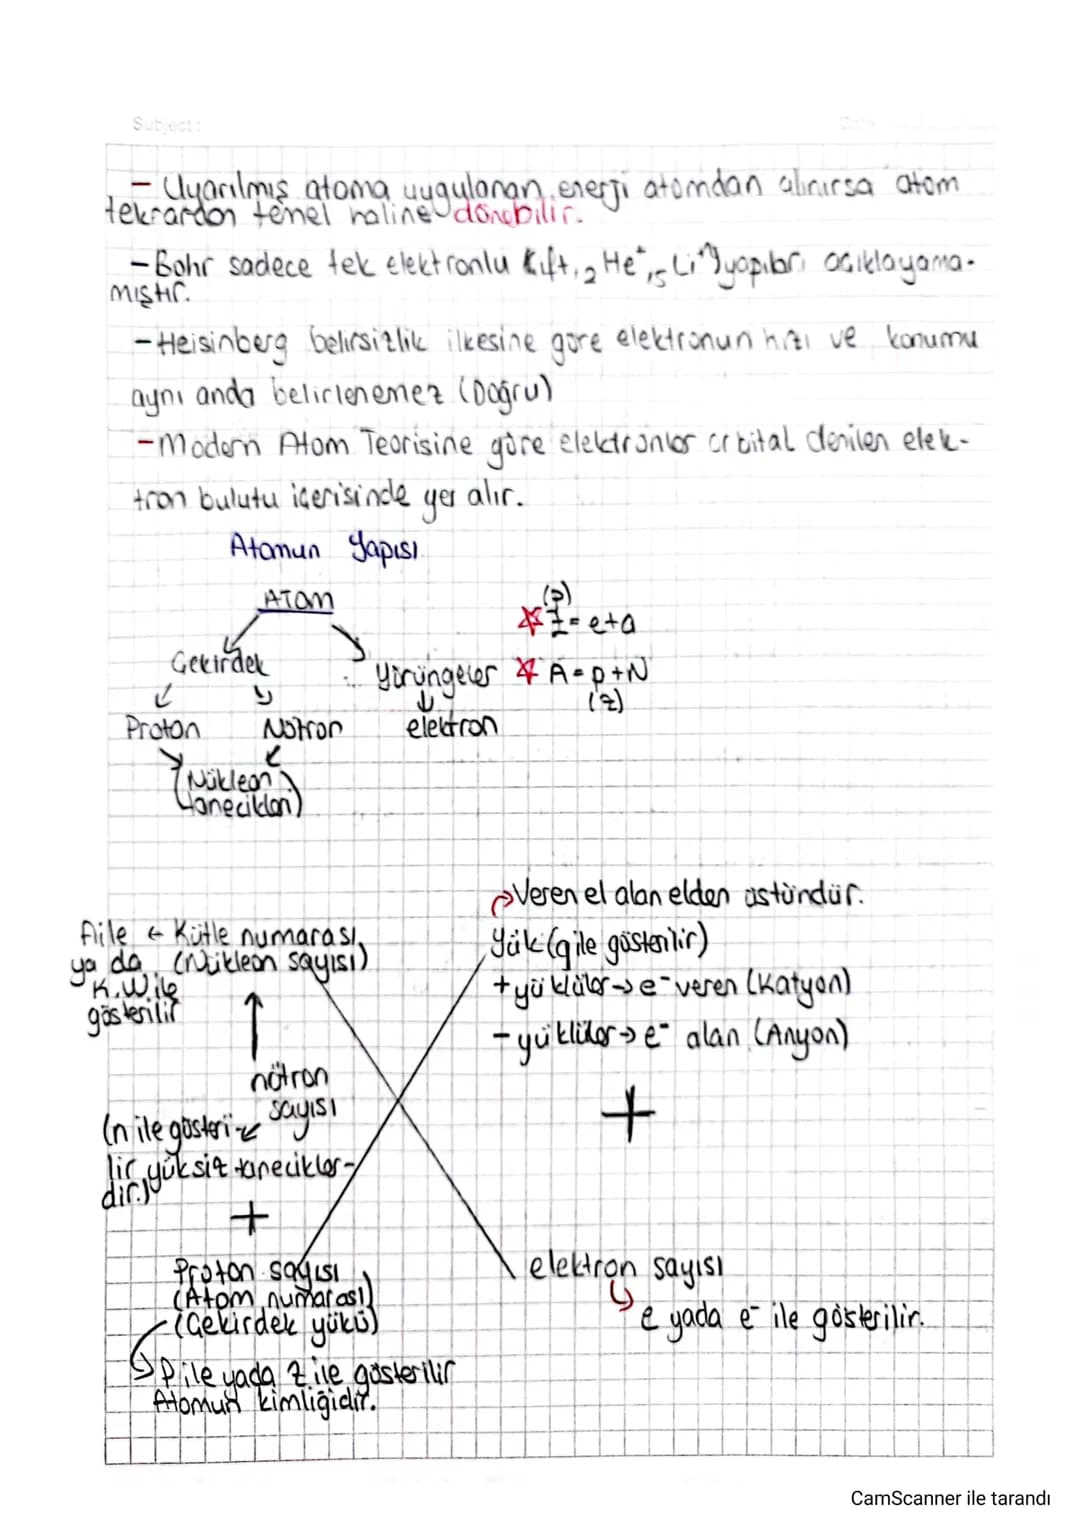 Subject:
- Uyarılmış atoma uygulanan enerji atomdan alınırsa atom
tekrardan temel haline dönebilir.
- Bohr sadece tek elektronlu yapıları açıklayama-
mıştır.
- Heisinberg belirsizlik ilkesine göre elektronun hızı ve konumu
aynı anda belirlenemez (Doğru)
- Modern Atom Teorisine göre elektronlar orbital denilen elek-
tron bulutu içerisinde yer alır.
Atomun Yapısı
ATOM
(p)
Z = e+q
Çekirdek
Yörüngeler
A = p+N
(z)
Proton
Nötron
elektron
(Nükleon
tanecikleri)
Veren el alan elden üstündür.
Aile ← Kütle numarası,
Yük (q ile gösterilir)
ya da (Nükleon sayısı)
K.W ile
gösterilir
+ yüklüler → e⁻ veren (Katyon)
- yüklüler → e⁻ alan (Anyon)
nötron
sayısı
+
(n ile gösteri-
lir yüksüz tanecikler-
dir.)
+
Proton sayısı
(Atom numarası)
(Çekirdek yükü)
elektron sayısı
e yada e⁻ ile gösterilir.
P ile yada Z ile gösterilir
Atomun kimliğidir.
CamScanner ile tarandı